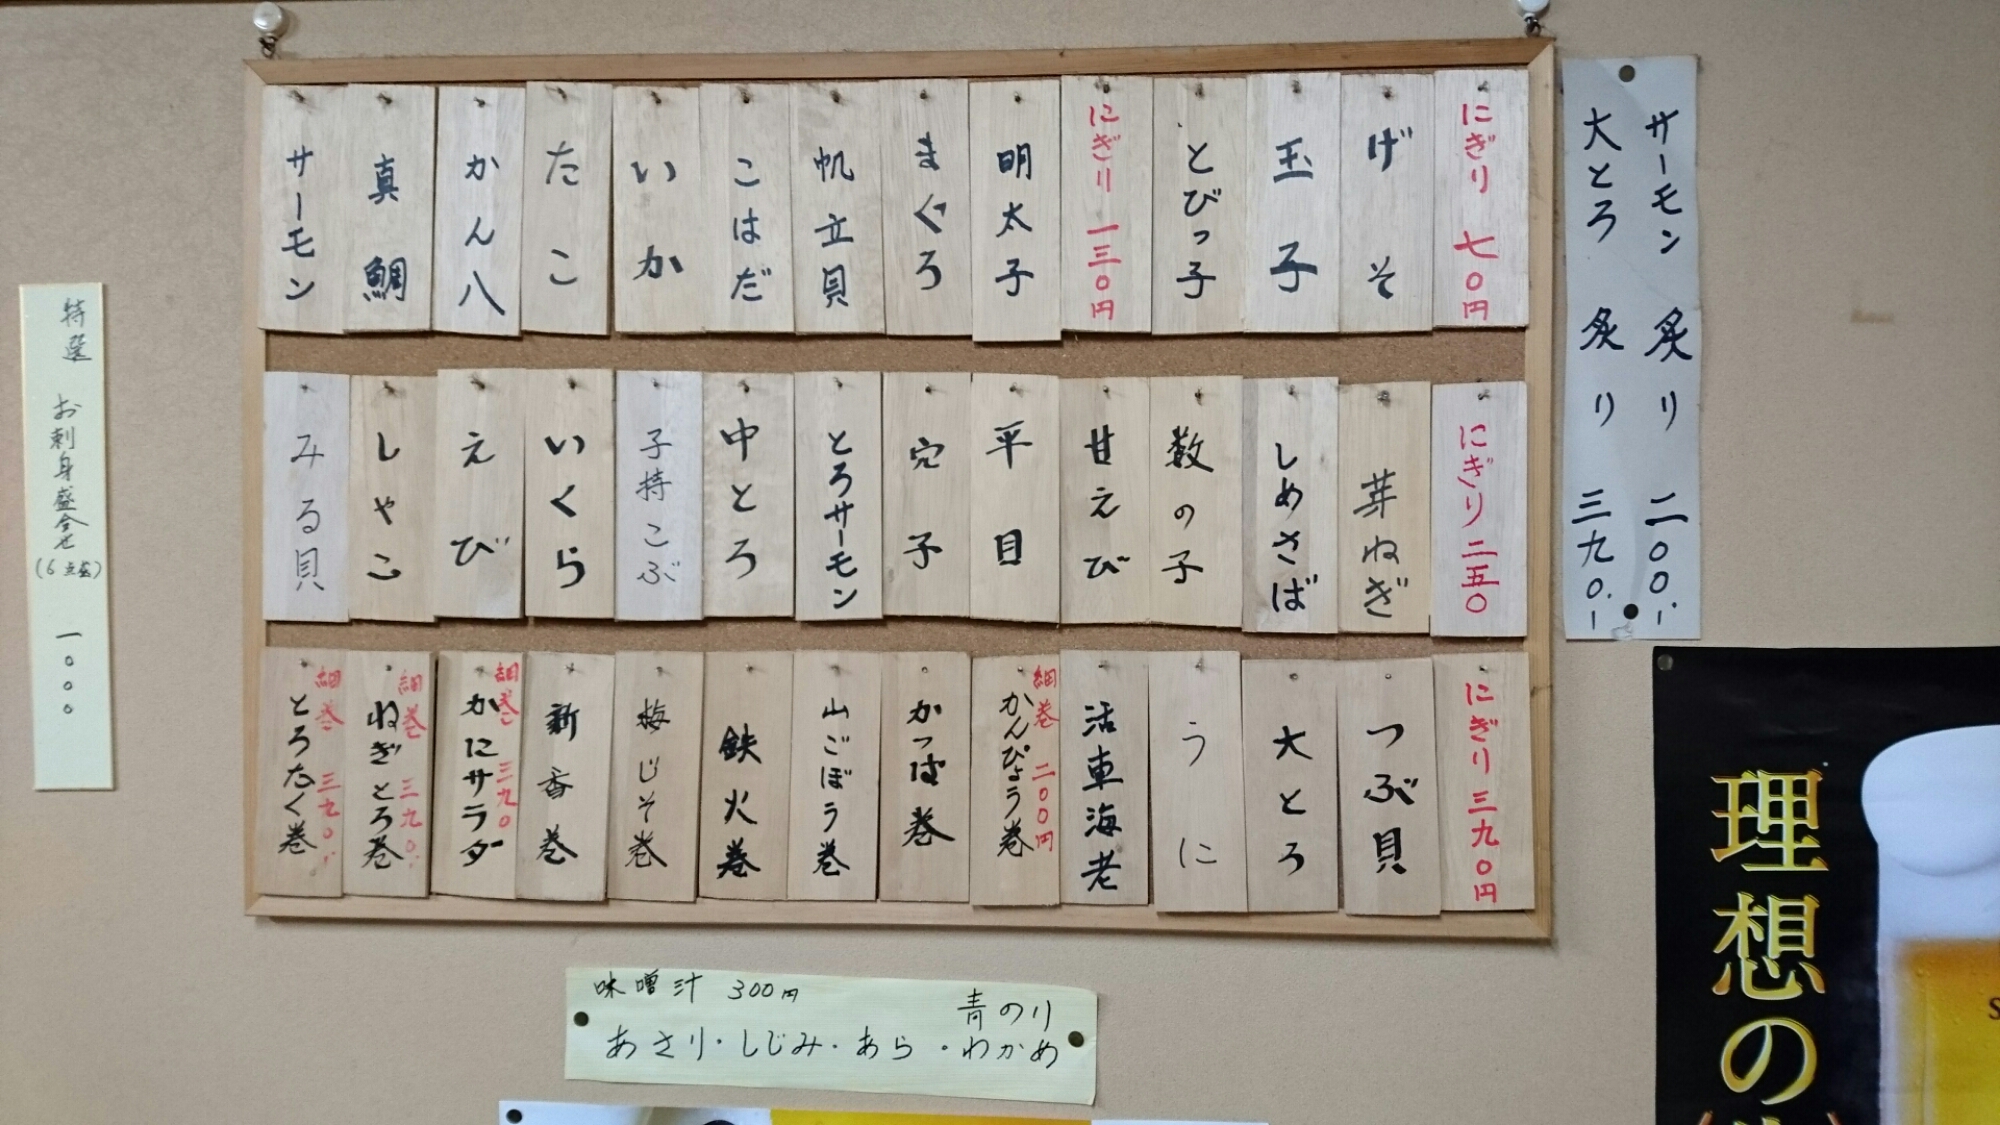 サーモン 炙り 二〇〇.-
大とろ 炙り 三九〇.-
にぎり 七〇円
げそ
玉子
とびっ子
にぎり 一三〇円
明太子
まぐろ
帆立貝
こはだ
いか
たこ
かん八
真鯛
サーモン
にぎり 二五〇
芽ねぎ
しめさば
数の子
甘えび
平目
穴子
とろサーモン
中とろ
子持こぶ
いくら
えび
しゃこ
みる貝
にぎり 三九〇円
つぶ貝
大とろ
うに
活車海老
細巻 二〇〇円
かんぴょう巻
かっぱ巻
山ごぼう巻
鉄火巻
梅じそ巻
新香巻
細巻 三九〇
かにサラダ
細巻 三九〇.-
ねぎとろ巻
細巻 三九〇.-
とろたく巻
特選 お刺身盛合せ (6点盛) 一〇〇〇
味噌汁 300円
青のり
あさり・しじみ・あら・わかめ
理想の